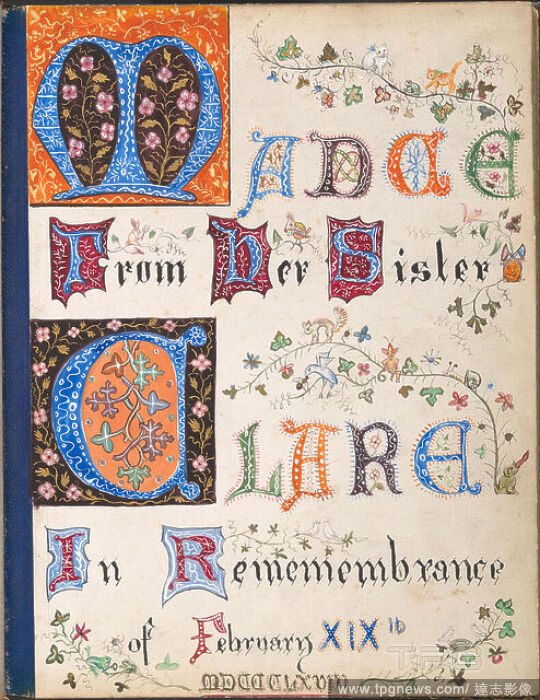 MADGE
From Her Sister
CLARE
In Rememembrance
of February XIXth
TPG
www.tpgnews.com/ 達志影像